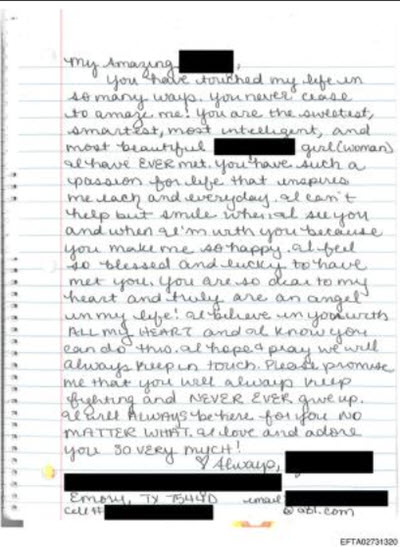 My Amazing ,
You have touched my life in
so many ways. You never cease
to amaze me! You are the sweetest,
smartest, most intelligent, and
most beautiful girl (woman)
I have EVER met. You have such a
passion for life that inspires
me each and everyday. I can't
help but smile when I see you
and when I'm with you because
you make me so happy. I feel
so blessed and lucky to have
met you. You are so dear to my
heart and truly are an angel
in my life! I believe in you with
ALL my HEART and I know you
can do this. I hope & pray we will
always keep in touch. Please promise
me that you will always keep
fighting and NEVER EVER give up.
I will ALWAYS be here for you NO
MATTER WHAT. I love and adore
you SO VERY MUCH!
♡ Always,
Emory, TX 75440 email
cell #
@aol.com
EFTA02731320